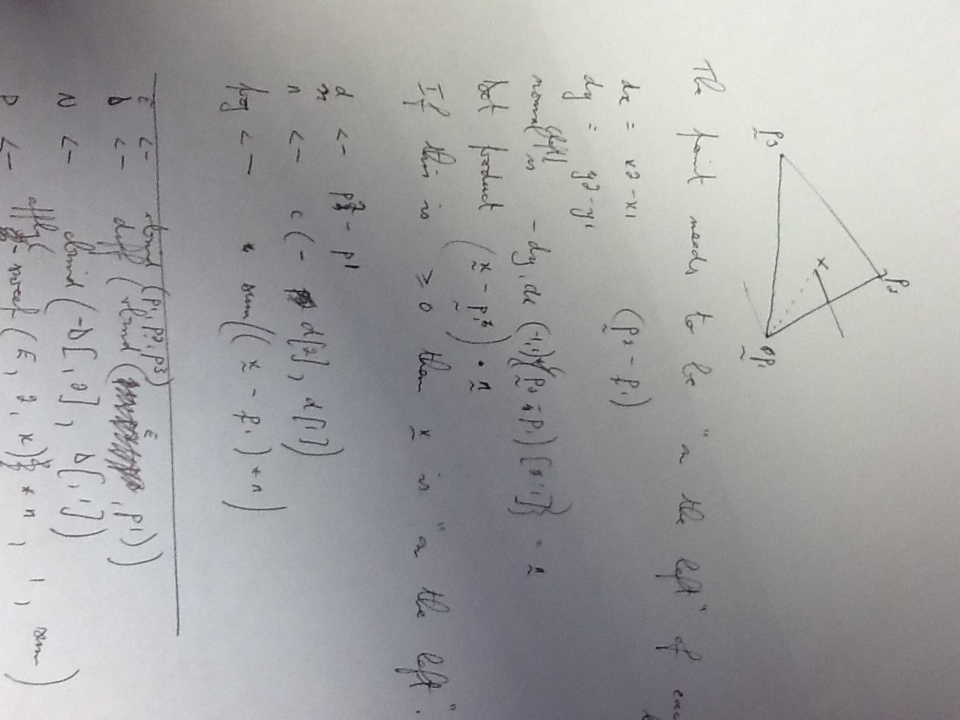 p2
x
p1
p3
The point needs to be "on the left" of
dx = x2 - x1 (p2 - p1)
dy = y2 - y1
normal (left) is - dy, dx (-1,1)*(p2 - p1) [2:1] = n
Dot product (x - p1) • n
If this is ≥ 0 then x is "on the left".
d <- p2 - p1
n <- c(- d[2], d[1])
<- sum((x - p1) * n)
E <- rbind (p1, p2, p3)
D <- diff (rbind (E, p1))
N <- cbind (-D[,2], D[,1])
P <- apply( sweep (E, 2, x) * n, 1, sum)